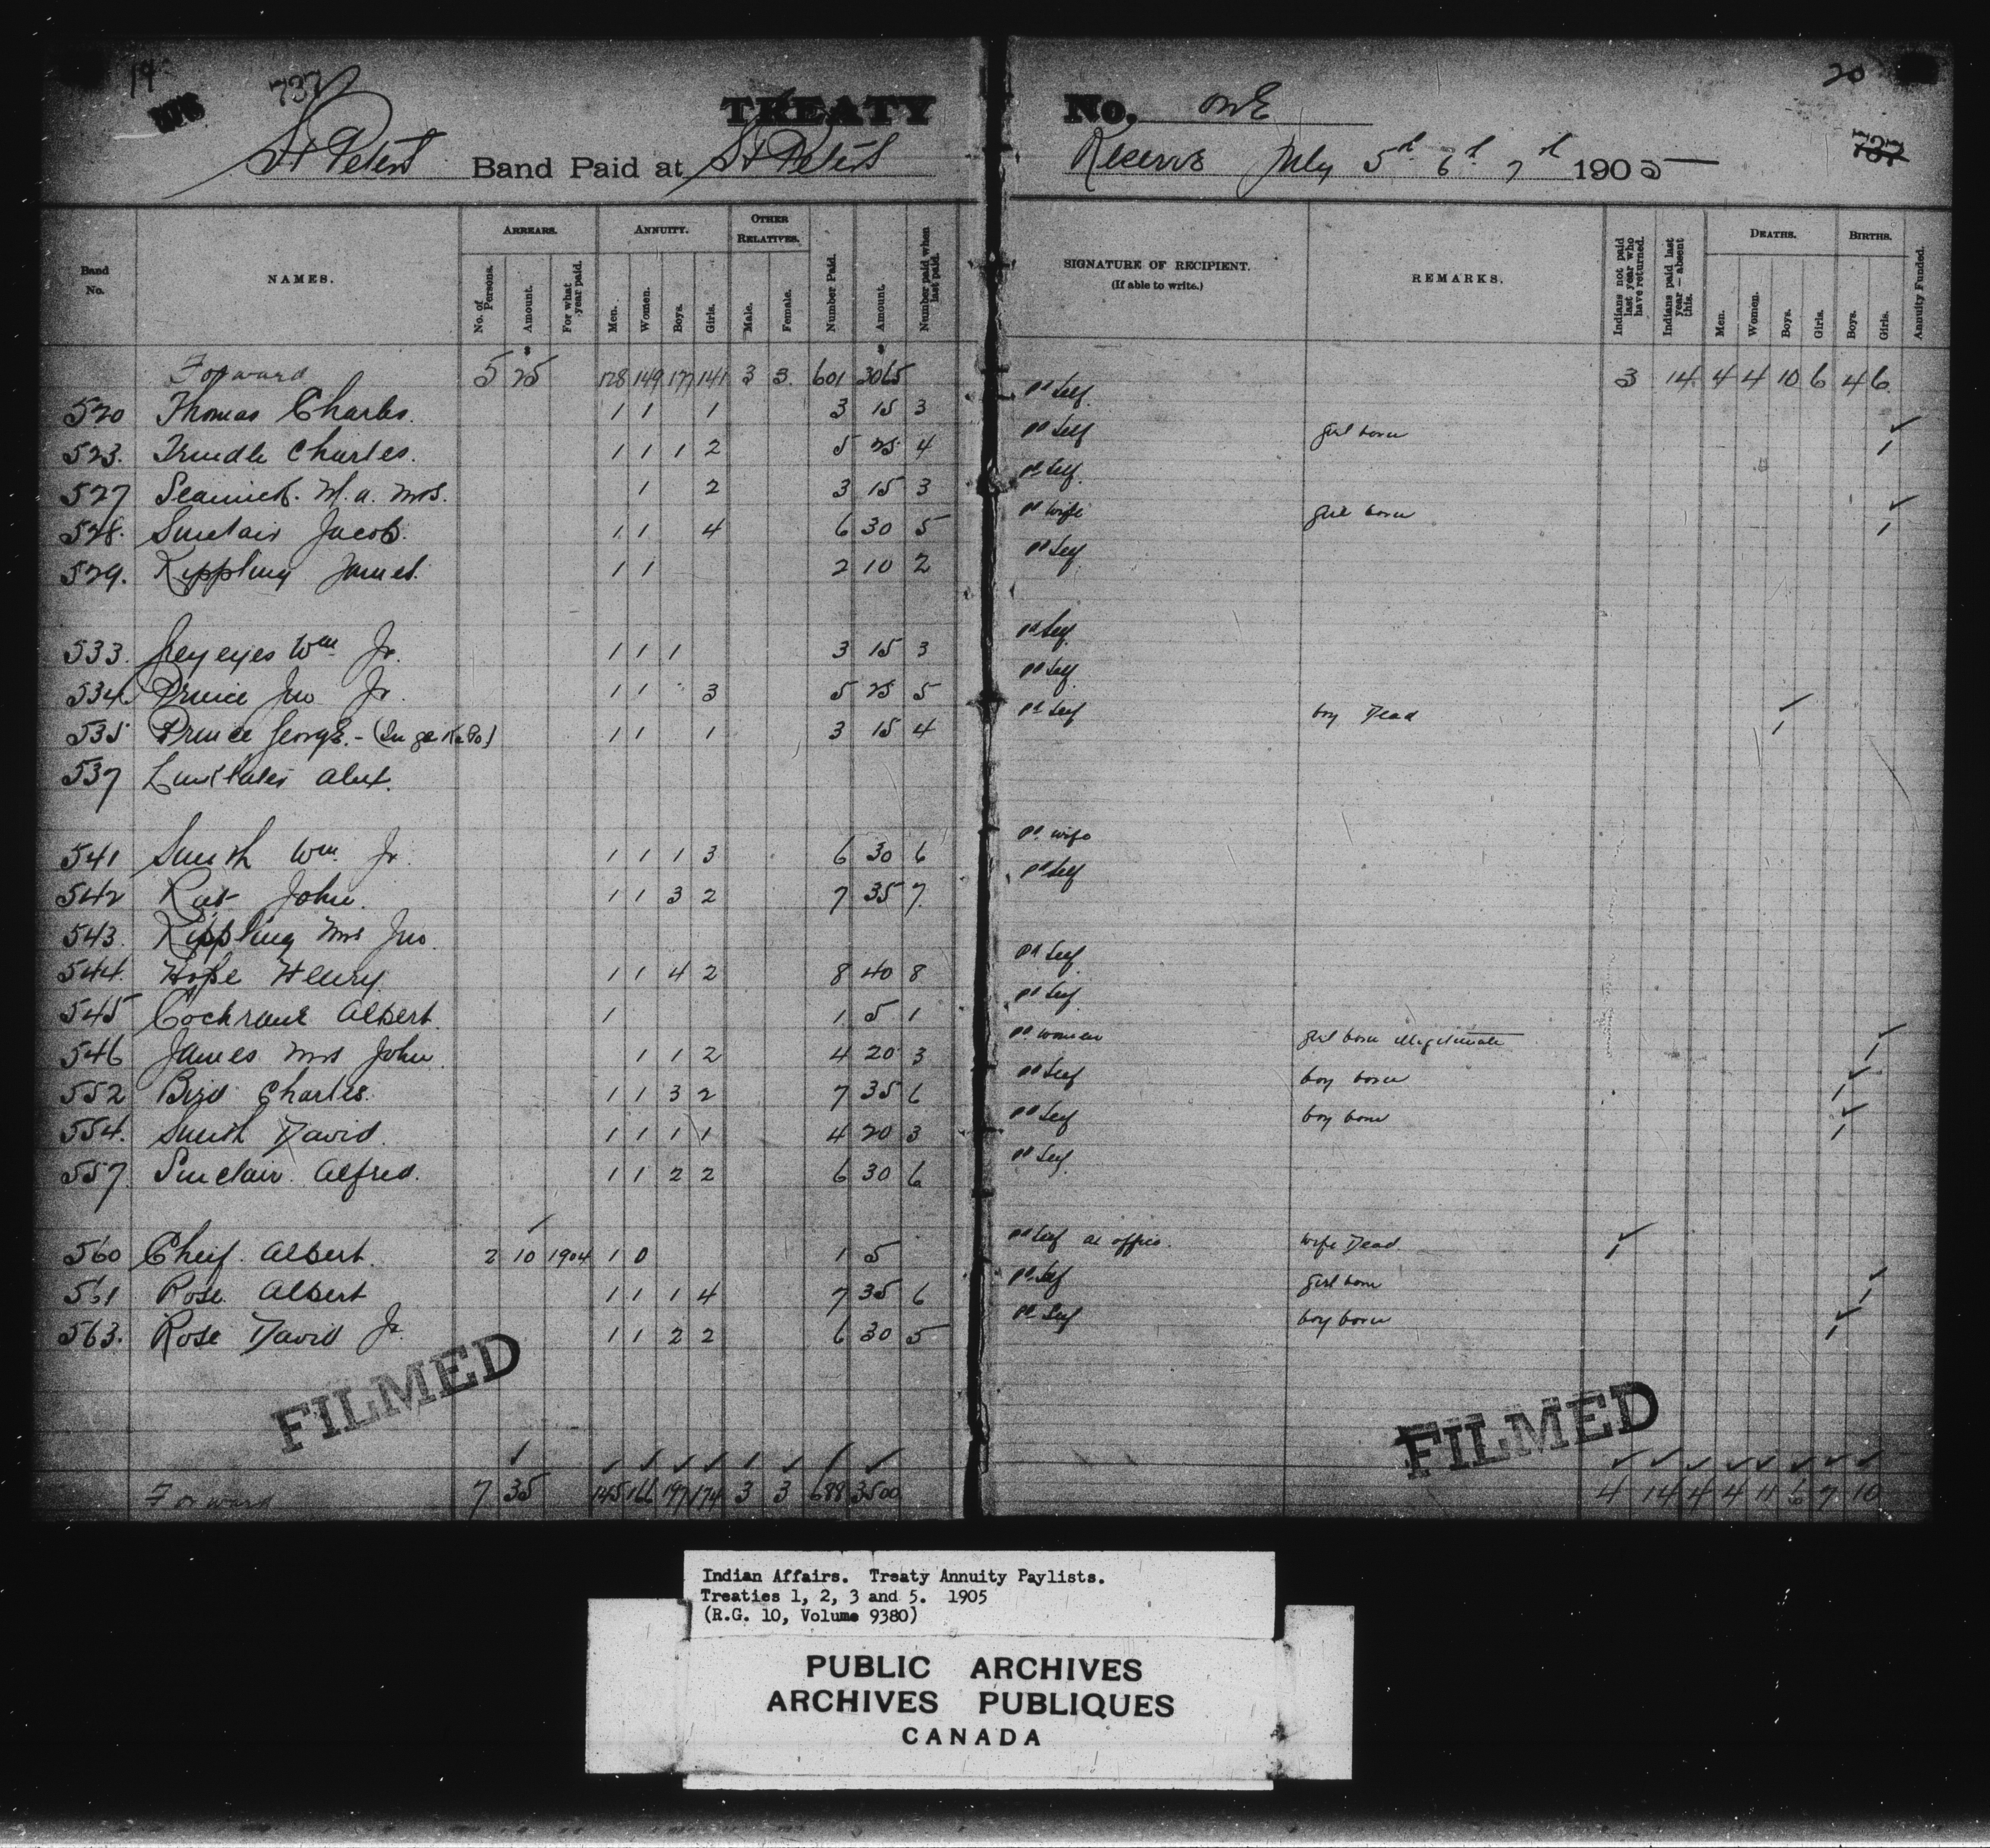 19 737 20
TREATY No. One
St Peters Band Paid at St Peters Reserve July 5th 6th 7th 1905 737
Band No. NAMES. ARREARS. ANNUITY. OTHER RELATIVES. Number Paid. Amount. Number paid when last paid. SIGNATURE OF RECIPIENT. (If able to write.) REMARKS. Indians not paid last year who have returned. Indians paid last year — absent this. DEATHS. BIRTHS. Annuity Funded.
No. of Persons. Amount. For what year paid. Men. Women. Boys. Girls. Male. Female. Men. Women. Boys. Girls. Boys. Girls.
Forward 5 25 128 149 177 141 3 3 601 3065 3 14 4 4 10 6 4 6
520 Thomas Charles. 1 1 1 3 15 3 pd Self
523. Trindle Charles. 1 1 1 2 5 25 4 pd Self girl born 1
527 M. a. Mrs. 1 2 3 15 3 pd Self
528. Sinclair Jacob. 1 1 4 6 30 5 pd wife girl born 1
529. Kippling James. 1 1 2 10 2 pd Self
533. Greyeyes Wm Jr. 1 1 1 3 15 3 pd Self
534. Prince Jno Jr. 1 1 3 5 25 5 pd Self
535 Prince George. 1 1 1 3 15 4 pd Self boy Dead 1
537 Alex.
541 Smith Wm. Jr. 1 1 1 3 6 30 6 pd wife
542 Rat John. 1 1 3 2 7 35 7 pd Self
543. Kippling Mrs Jno.
544. Hope Henry 1 1 4 2 8 40 8 pd Self
545 Cochrane Albert. 1 1 5 1 pd Self
546 James Mrs John 1 1 2 4 20 3 pd woman girl born illegitimate 1
552 Bird Charles. 1 1 3 2 7 35 6 pd Self boy born 1
554. Smith David. 1 1 1 1 4 20 3 pd Self boy born 1
557. Sinclair Alfred. 1 1 2 2 6 30 6 pd Self
560 Cheif Albert. 2 10 1904 1 0 1 5 pd Self at office. wife Dead. 1
561 Rose Albert 1 1 1 4 7 35 6 pd Self girl born 1
563. Rose David Jr. 1 1 2 2 6 30 5 pd Self boy born 1
FILMED FILMED
Forward 7 35 145 166 197 174 3 3 688 3500 4 14 4 4 11 6 7 10
Indian Affairs. Treaty Annuity Paylists.
Treaties 1, 2, 3 and 5. 1905
(R.G. 10, Volume 9380)
PUBLIC ARCHIVES
ARCHIVES PUBLIQUES
CANADA